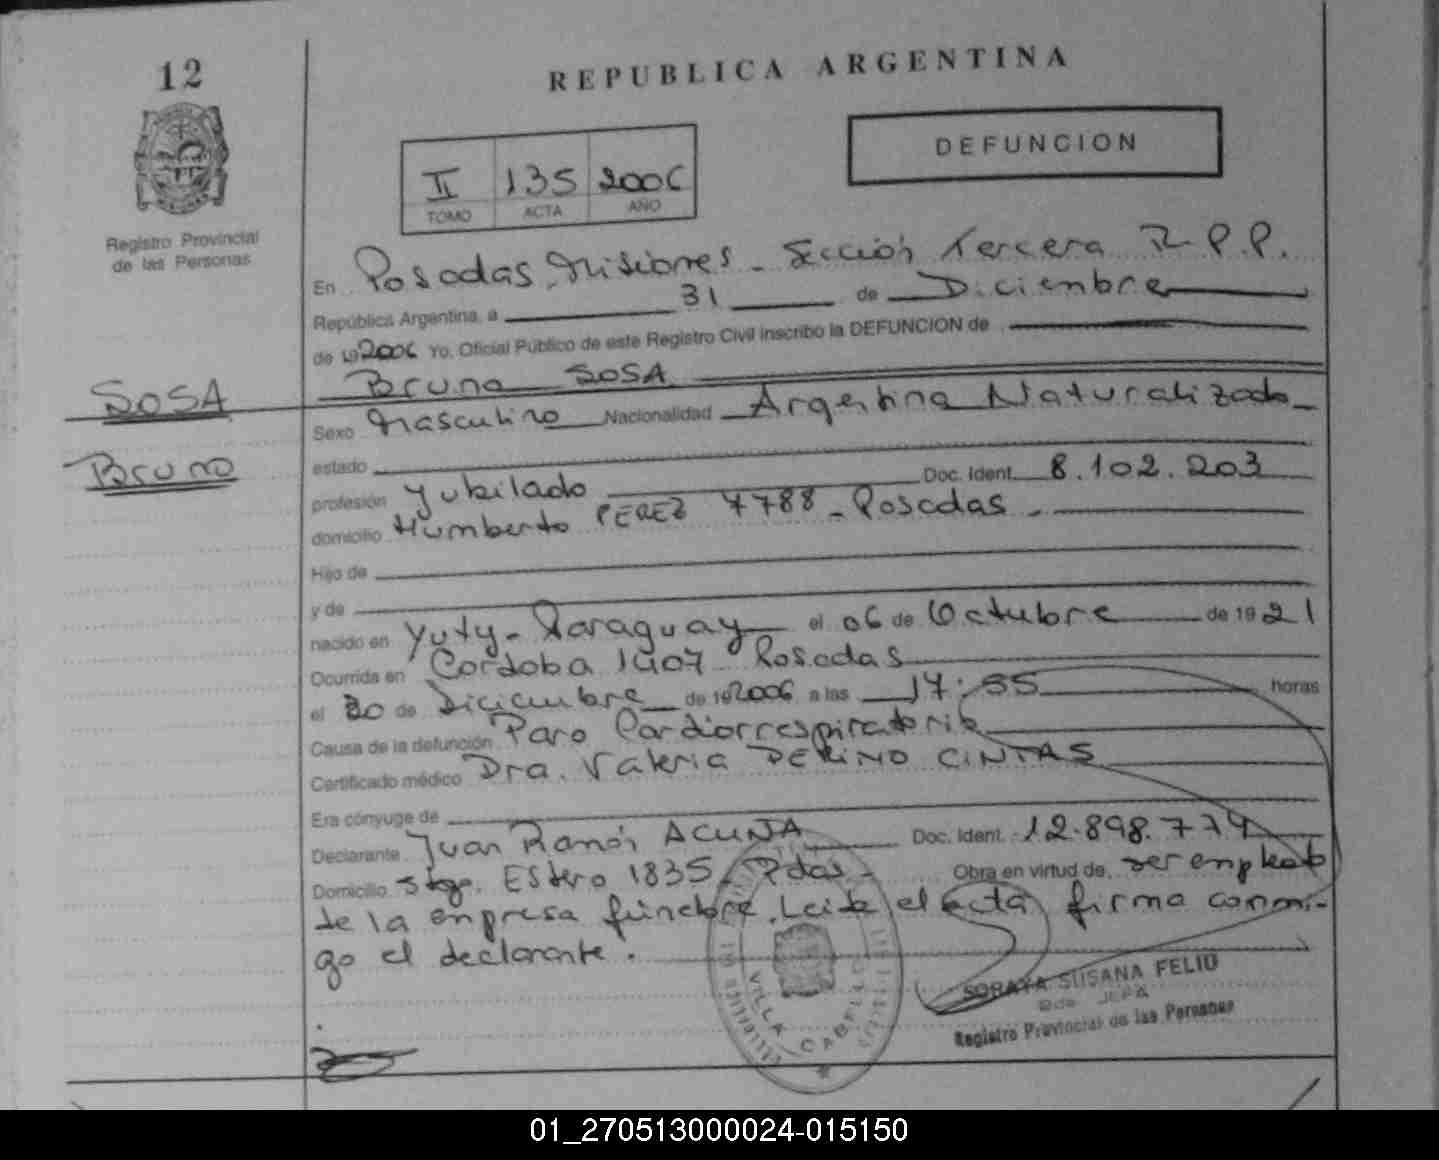 12
REPUBLICA ARGENTINA
DEFUNCION
II 135 2006
TOMO ACTA AÑO
Registro Provincial
de las Personas
En Posadas, Misiones - Sección Tercera R.P.P.
República Argentina, a 31 de Diciembre
de 19 2006 Yo, Oficial Público de este Registro Civil inscribo la DEFUNCION de
Bruno SOSA
SOSA
Bruno
Sexo Masculino Nacionalidad Argentina Naturalizado
estado
profesión Jubilado Doc. Ident. 8.102.203
domicilio Humberto PEREZ 7788 - Posadas -
Hijo de
y de
nacido en Yuty - Paraguay el 06 de Octubre de 19 21
Ocurrida en Cordoba 1407 Posadas
el 30 de Diciembre de 19 2006 a las 17:55 horas
Causa de la defunción Paro Cardiorrespiratorio
Certificado médico Dra. Valeria CINTAS
Era cónyuge de
Declarante Juan Ramón ACUÑA Doc. Ident. 12.898.774
Domicilio Stgo. Estero 1835 - Pdas - Obra en virtud de ser empleado
de la empresa fúnebre. Leida el acta firma conmi-
go el declarante.
VILLA CABELLO
SORAYA SUSANA FELIU
2da JEFA
Registro Provincial de las Personas
01_270513000024-015150